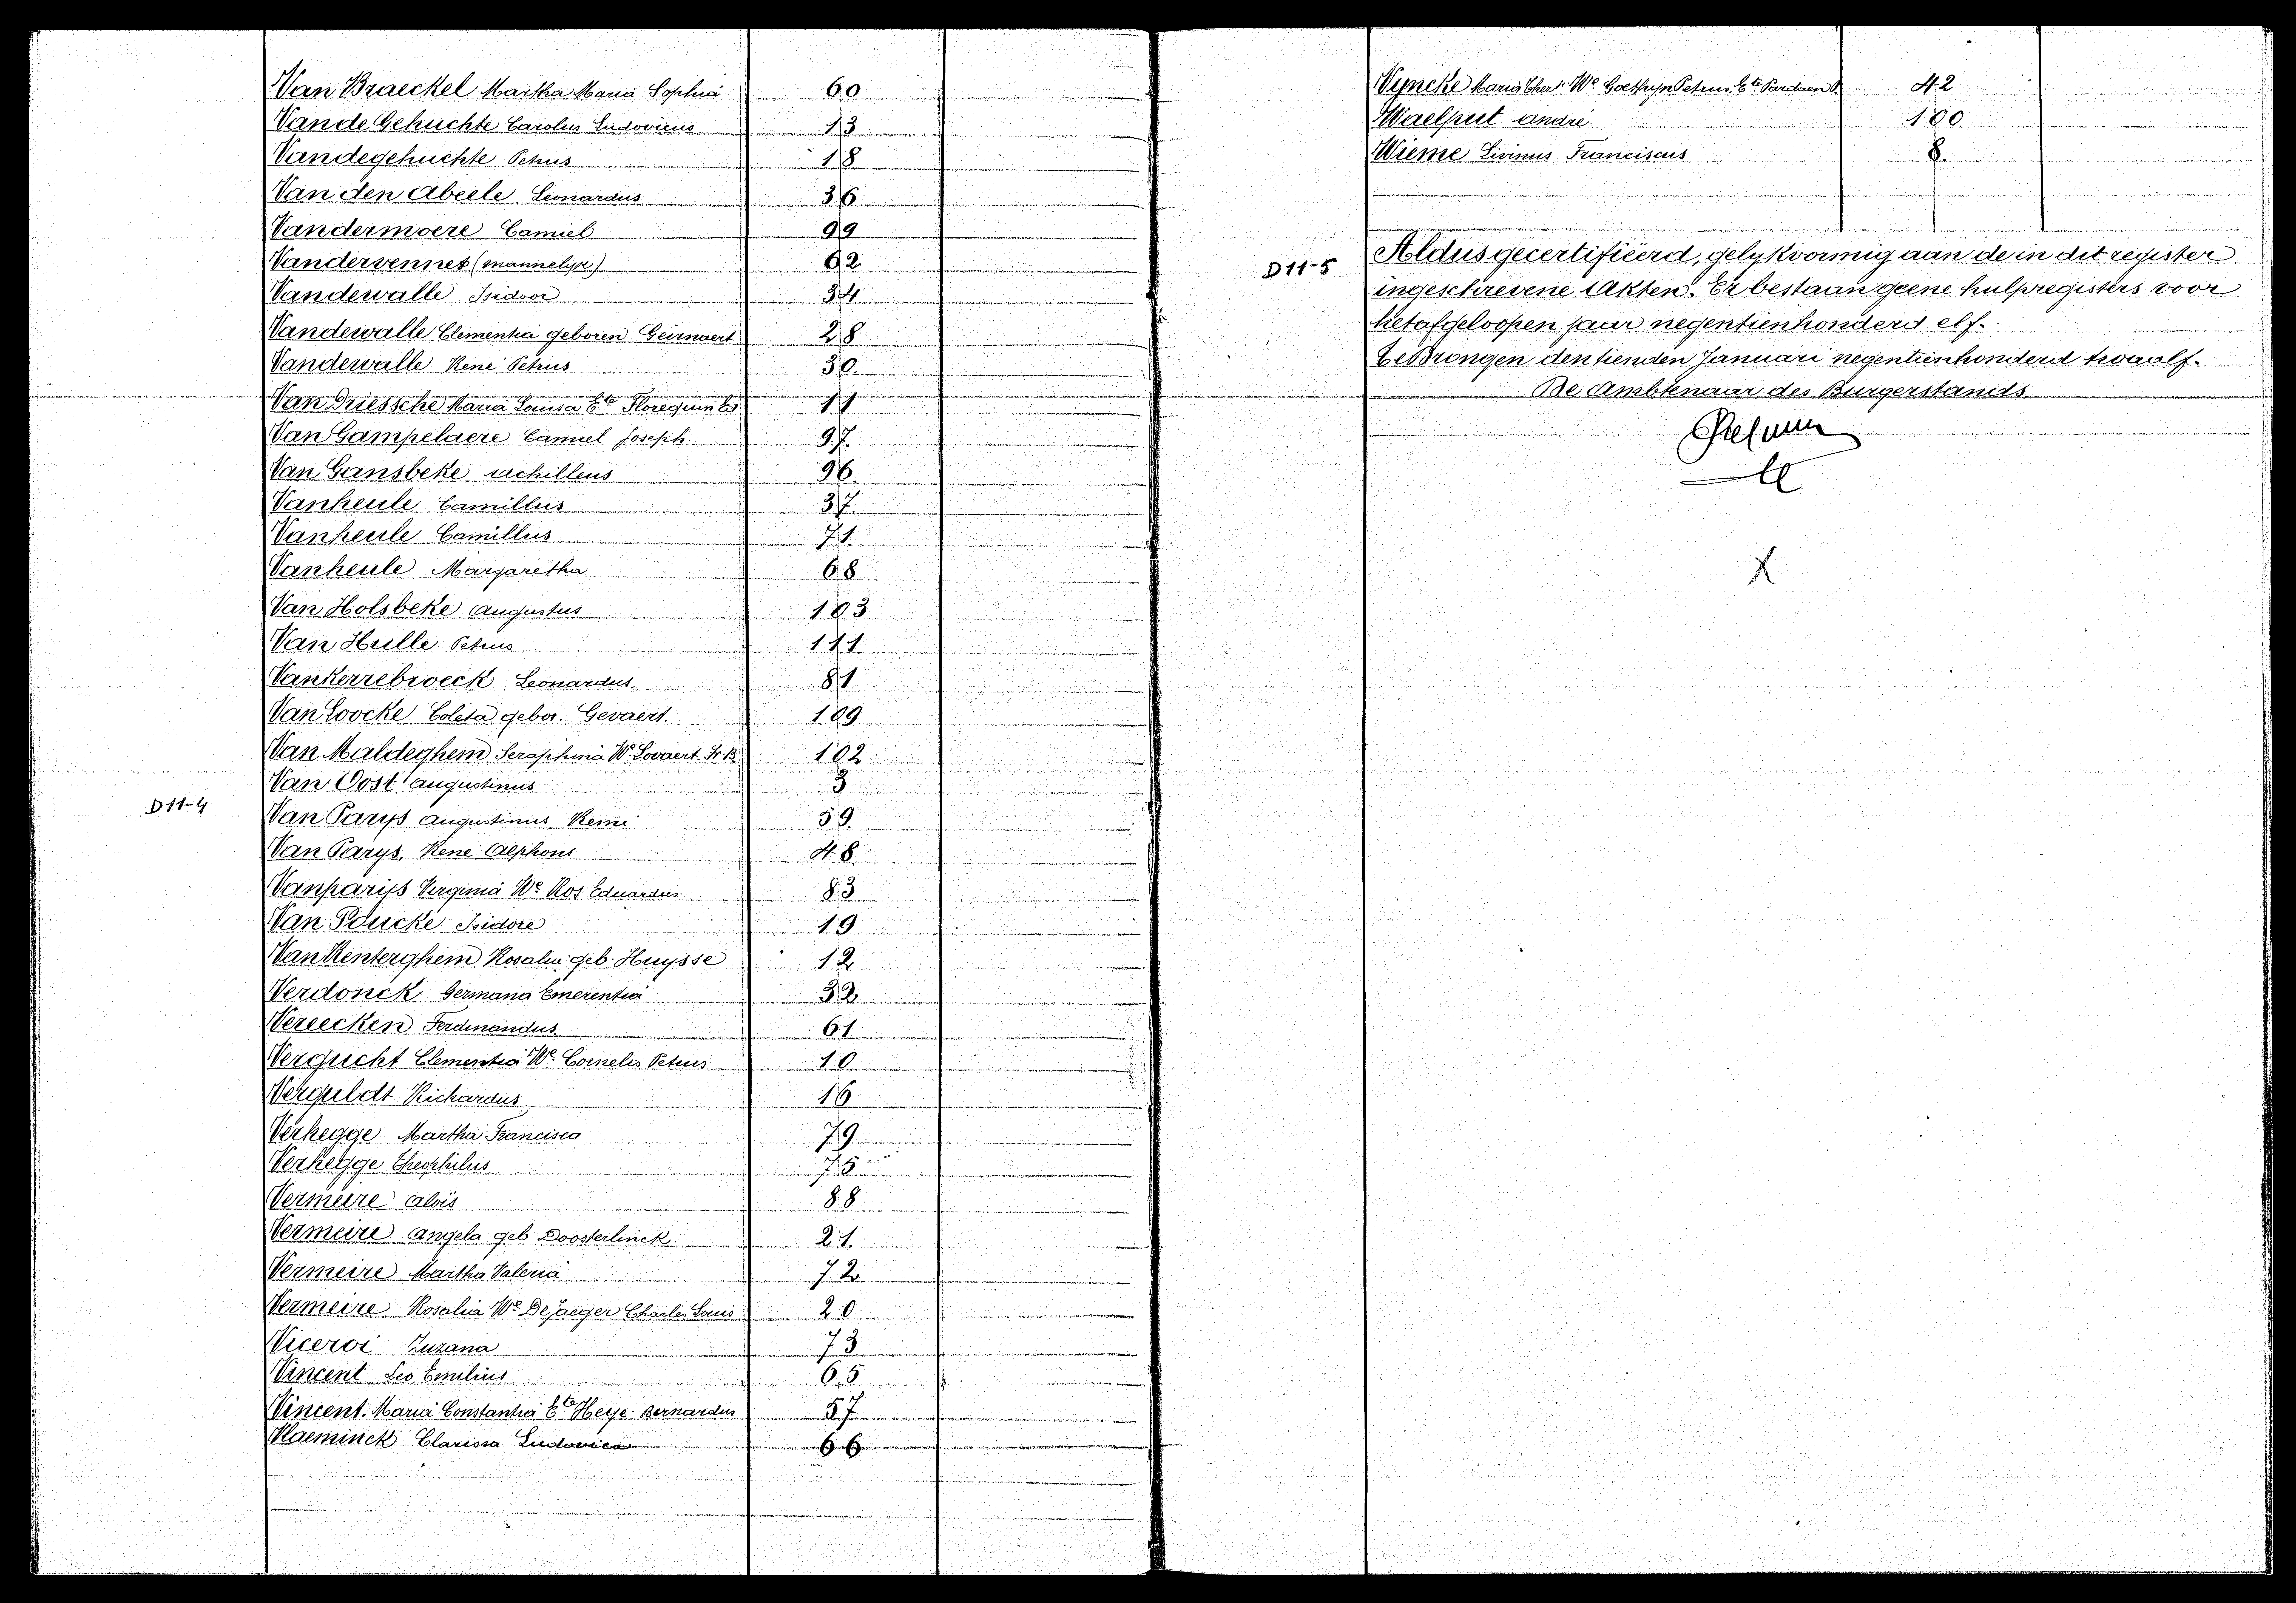 Van Braeckel Martha Maria Sophia 60
Van de Gehuchte Carolus Ludovicus 13
Vandegehuchte Petrus 18
Van den Abeele Leonardus 36
Vandermoere Camiel 99
Vandervennet (mannelyk) 62
Vandewalle Isidoor 34
Vandewalle Clementia geboren Geirnaert 28
Vandewalle René Petrus 30.
Van Driessche Maria Louisa Ete Florequin Ed. 11
Van Gampelaere Camiel Joseph. 97.
Van Gansbeke Achilleus 96.
Vanheule Camillus 37
Vanheule Camillus 71.
Vanheule Margaretha 68
Van Holsbeke Augustus 103
Van Hulle Petrus 111.
Vankerrebroeck Leonardus. 81
Van Loocke Coleta gebor. Gevaert. 109
Van Maldeghem Seraphina We Lovaert Fr B. 102
Van Oost Augustinus 3
D11-4
Van Parys Augustinus Remi 59.
Van Parys, René Alphons 48.
Vanparijs Virginia We Ros Eduardus 83
Van Poucke Isidore 19
Van Renterghem Rosalie geb. Huysse 12
Verdonck Germana Emerentia 32
Vereecken Ferdinandus 61
Vergucht Clementia We Cornelis Petrus 10
Verguldt Richardus 16
Verhegge Martha Francisca 79
Verhegge Theophilus 75
Vermeire Aloïs 88
Vermeire Angela geb Doosterlinck. 21.
Vermeire Martha Valeria 72
Vermeire Rosalia We De Jaeger Charles Louis 20
Viceroi Zuzana 73
Vincent Leo Emilius 65
Vincent. Maria Constantia Ete Heye Bernardus 57
Vlaeminck Clarissa Ludovica 66
Vyncke Maria We Goethyn Petrus Ete Pardaen 42
Waelput André 100.
Wieme Livinus Franciscus 8.
D11-5
Aldus gecertifiëerd, gelykvormig aan de in dit register
ingeschrevene Akten. Er bestaan geene hulpregisters voor
het afgeloopen jaar negentienhonderd elf.
Te Drongen den tienden Januari negentienhonderd twaalf.
De Ambtenaar des Burgerstands.
X